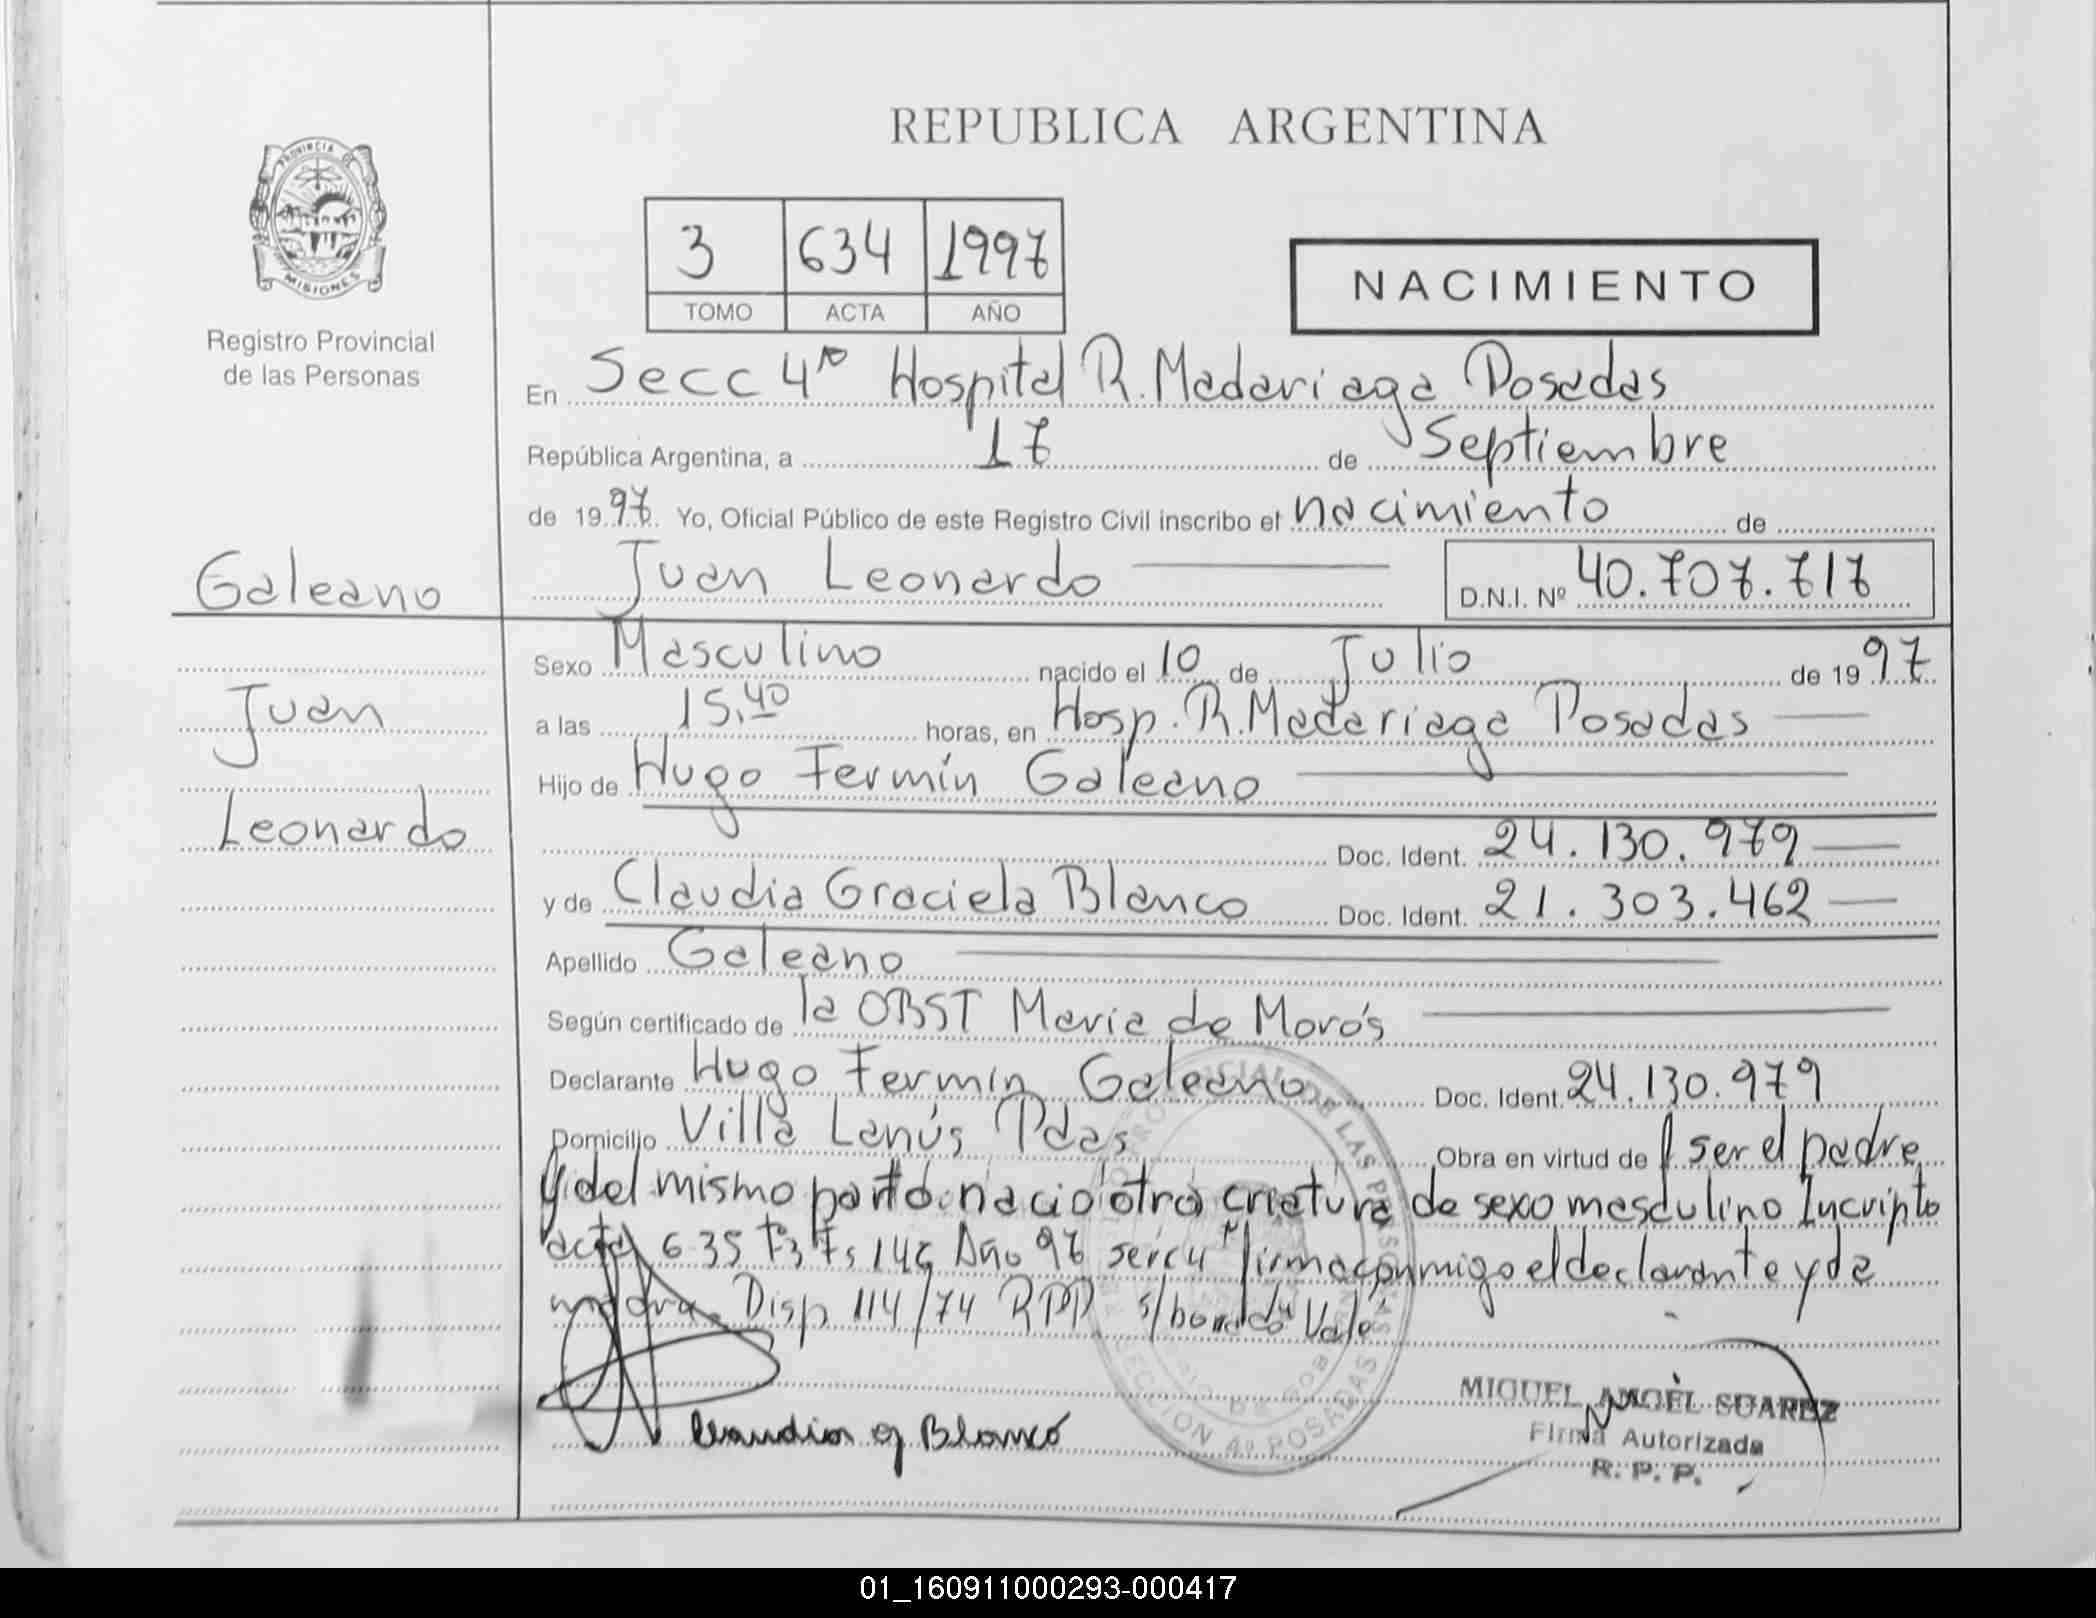 REPUBLICA ARGENTINA
PROVINCIA DE
MISIONES
Registro Provincial
de las Personas
3 634 1997
TOMO ACTA AÑO
NACIMIENTO
En Secc 4ta Hospital R. Madariaga Posadas
República Argentina, a 17 de Septiembre
de 1997 Yo, Oficial Público de este Registro Civil inscribo el nacimiento de
Galeano
Juan Leonardo D.N.I. Nº 40.707.717
Sexo Masculino nacido el 10 de Julio de 1997
Juan
a las 15,40 horas, en Hosp. R. Madariaga Posadas
Hijo de Hugo Fermín Galeano
Leonardo
Doc. Ident. 24.130.979
y de Claudia Graciela Blanco Doc. Ident. 21.303.462
Apellido Galeano
Según certificado de la OBST Maria de Morós
Declarante Hugo Fermin Galeano Doc. Ident. 24.130.979
Domicilio Villa Lanús Pdas Obra en virtud de ser el padre
y del mismo parto nacio otra criatura de sexo masculino Incripto
acta 635 tº3 Fs 146 Año 97 firma conmigo el declarante y la
madre. Disp 114/74 RPP s/borrado Vale
Claudia g Blanco
MIGUEL ANGEL SUAREZ
Firma Autorizada
R. P. P.
DE LAS PERSONAS
SECCION 4ª POSADAS
01_160911000293-000417